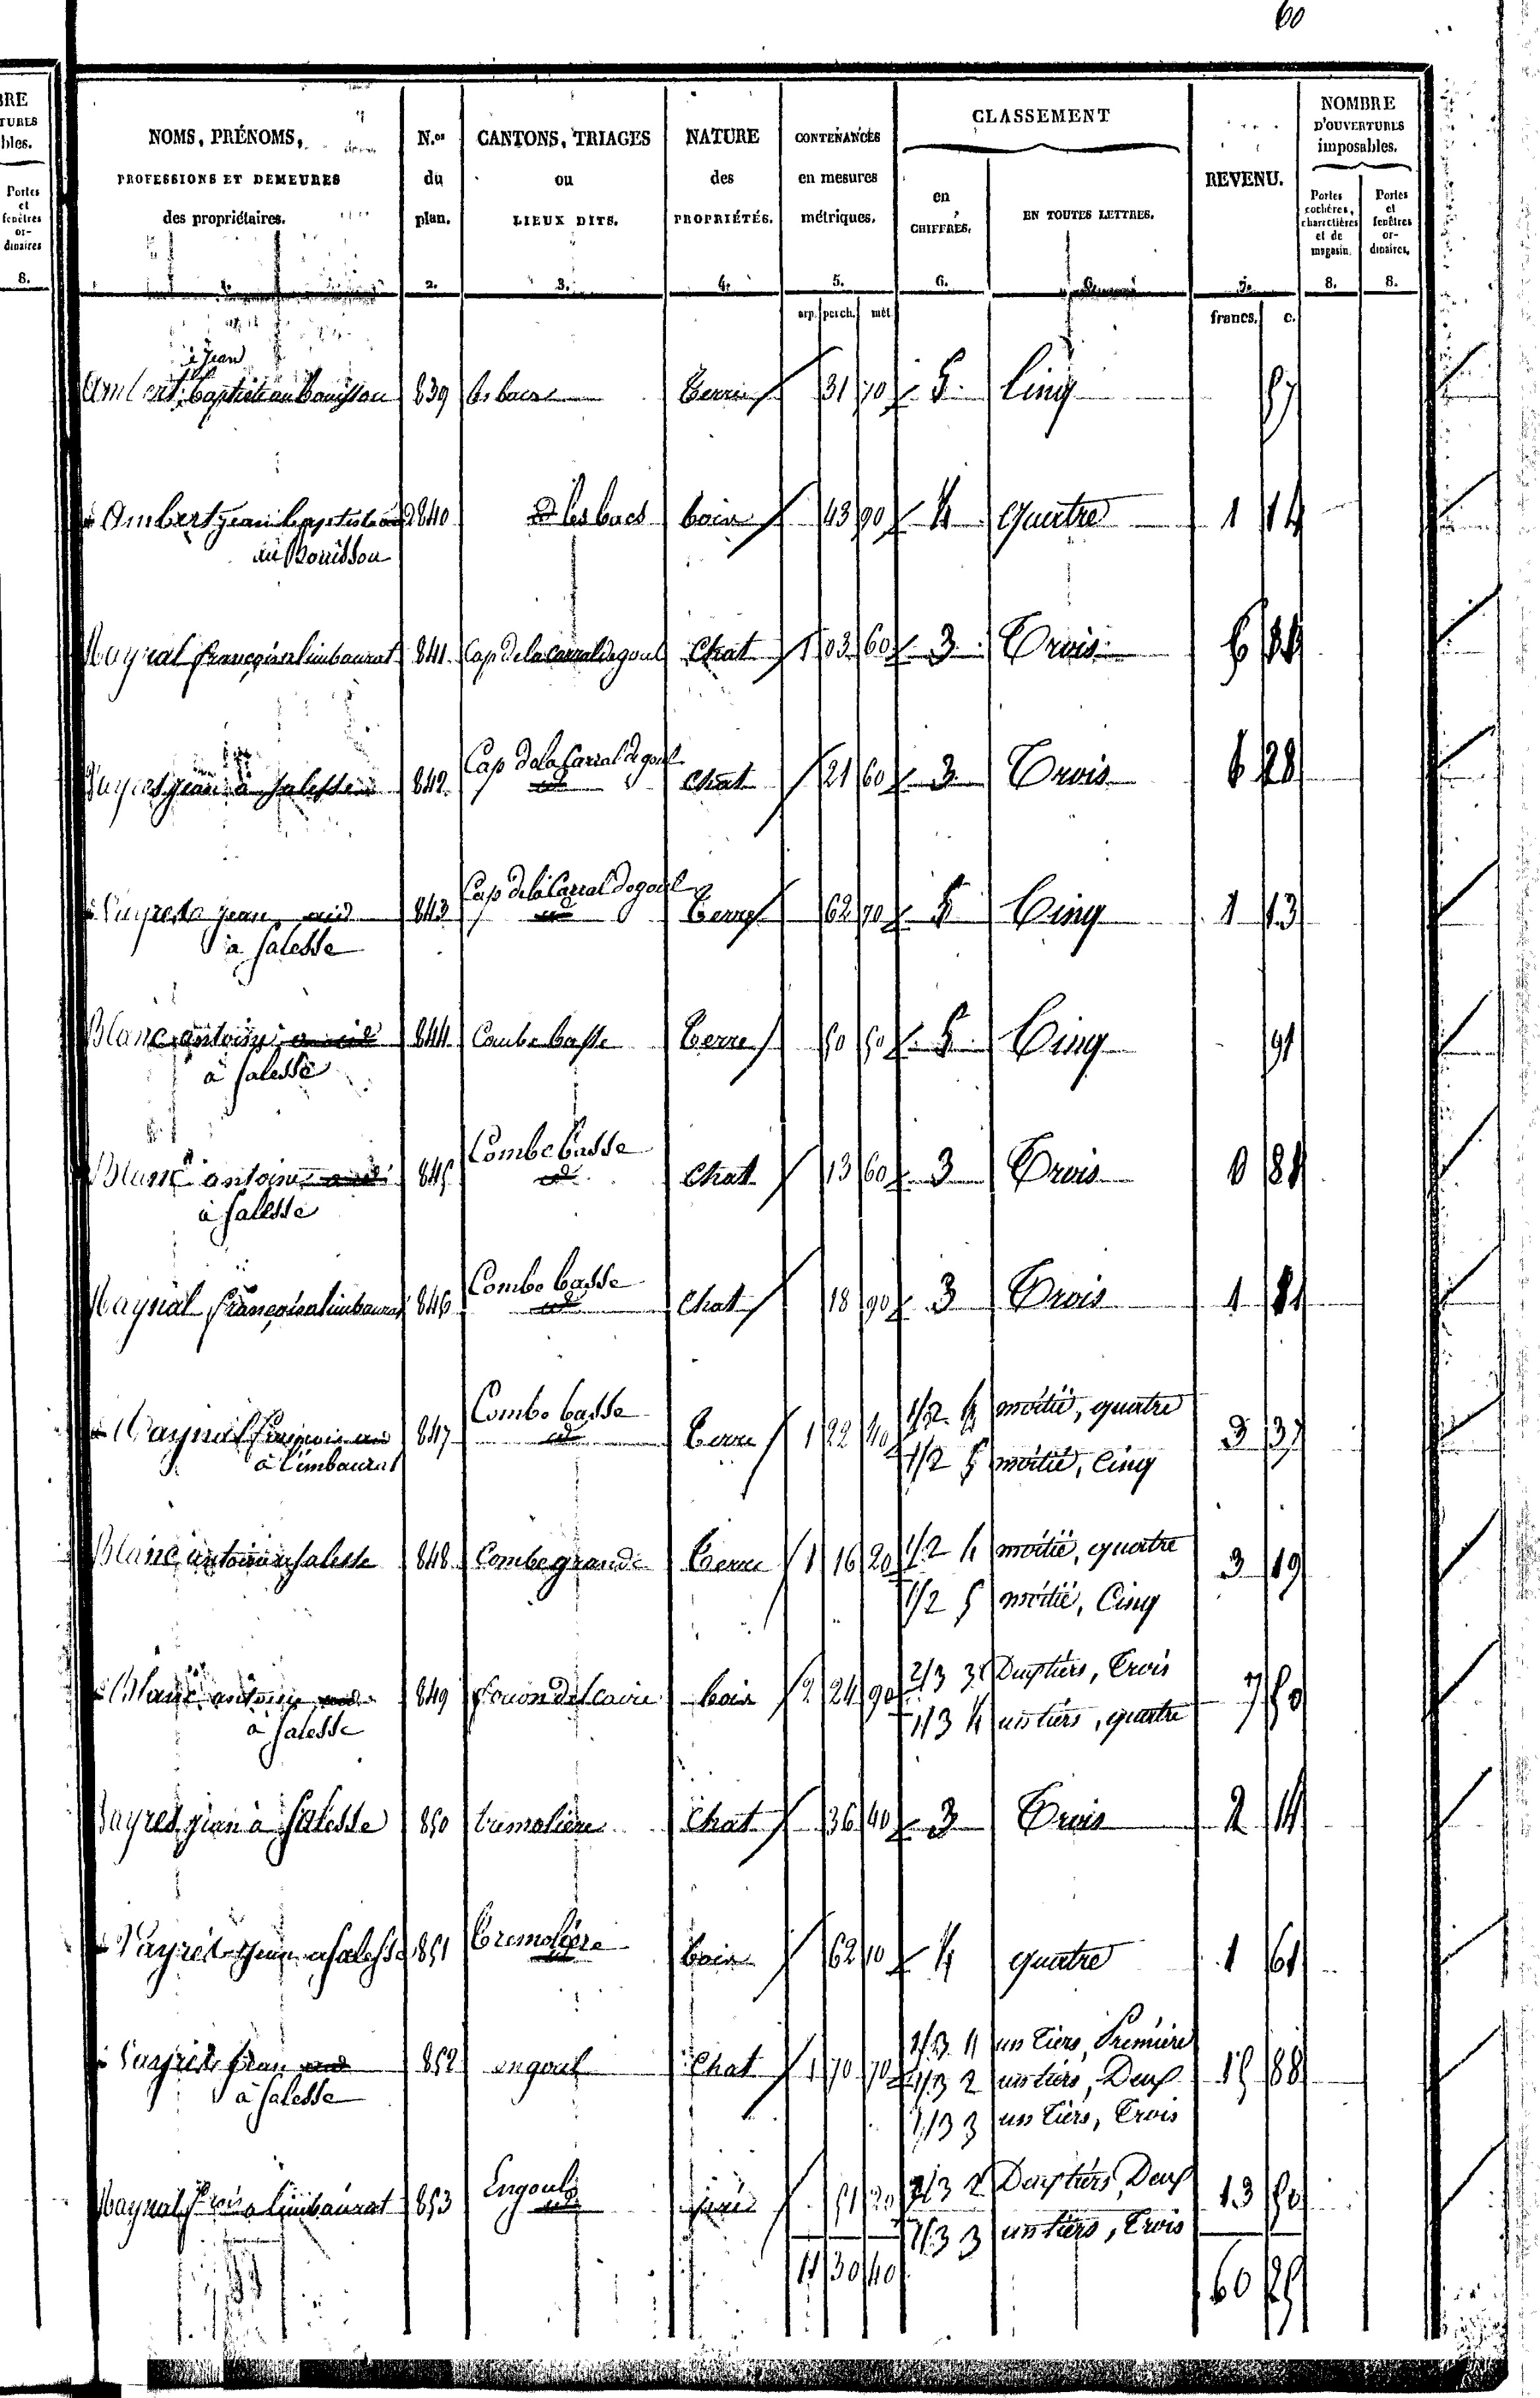 60
BRE
TURES
bles.
Portes
et
fenêtres
or-
dinaires
8.
NOMS, PRÉNOMS,
PROFESSIONS ET DEMEURES
des propriétaires.
1.
N.os
du
plan.
2.
CANTONS, TRIAGES
ou
LIEUX DITS.
3.
NATURE
des
PROPRIÉTÉS.
4.
CONTENANCES
en mesures
métriques.
5.
CLASSEMENT
en
CHIFFRES.
6.
EN TOUTES LETTRES.
REVENU.
7.
NOMBRE
D'OUVERTURES
imposables.
Portes
cochères,
charretières
et de
magasin.
8.
Portes
et
fenêtres
or-
dinaires.
8.
arp. perch. mèt.
francs. c.
Jean
Ambert Baptiste au Bouysson 839 les bacs Terre 31 70 5 Cinq 57
Ambert Jean Baptiste 840 les bacs bois 43 90 4 quatre 1 14
au Bouisson
Maynal françois a limbaurat 841 Cap de la Carral degoul Chat 1 03 60 3 Trois 6
Jean à Salesse 842 Cap de la Carral degoul Chat 21 60 3 Trois 28
id
Jean 843 Cap de la Carral degoul Terre 62 70 5 Cinq 1 13
à Salesse id
Blanc antoine 844 Combe basse Terre 50 50 5 Cinq 91
à Salesse
Blanc antoine 845 Combe basse Chat 13 60 3 Trois 0 81
à Salesse id
Maynal françois a limbaurat 846 Combe basse Chat 18 90 3 Trois 1
id
Maynal françois 847 Combe basse Terre 1 22 40 1/2 4 moitié, quatre 3 37
à limbaurat id 1/2 5 moitié, Cinq
Blanc antoine a Salesse 848 Combe grande Terre 1 16 20 1/2 4 moitié, quatre 3 19
1/2 5 moitié, Cinq
Blanc antoine 849 bois 2 24 90 2/3 3 Deux tiers, Trois 7 50
à Salesse 1/3 4 un tiers, quatre
Jean à Salesse 850 tremolière Chat 36 40 3 Trois 2 14
Jean a Salesse 851 Tremolière bois 62 10 4 quatre 1 61
id
Jean 852 engoul Chat 1 70 70 1/3 1 un Tiers, Première 15 88
à Salesse 1/3 2 un tiers, Deux
1/3 3 un Tiers, Trois
Maynal a limbaurat 853 Engoul pré 51 20 2/3 2 Deux tiers, Deux 13 50
id 1/3 3 un tiers, Trois
11 30 40 60 25